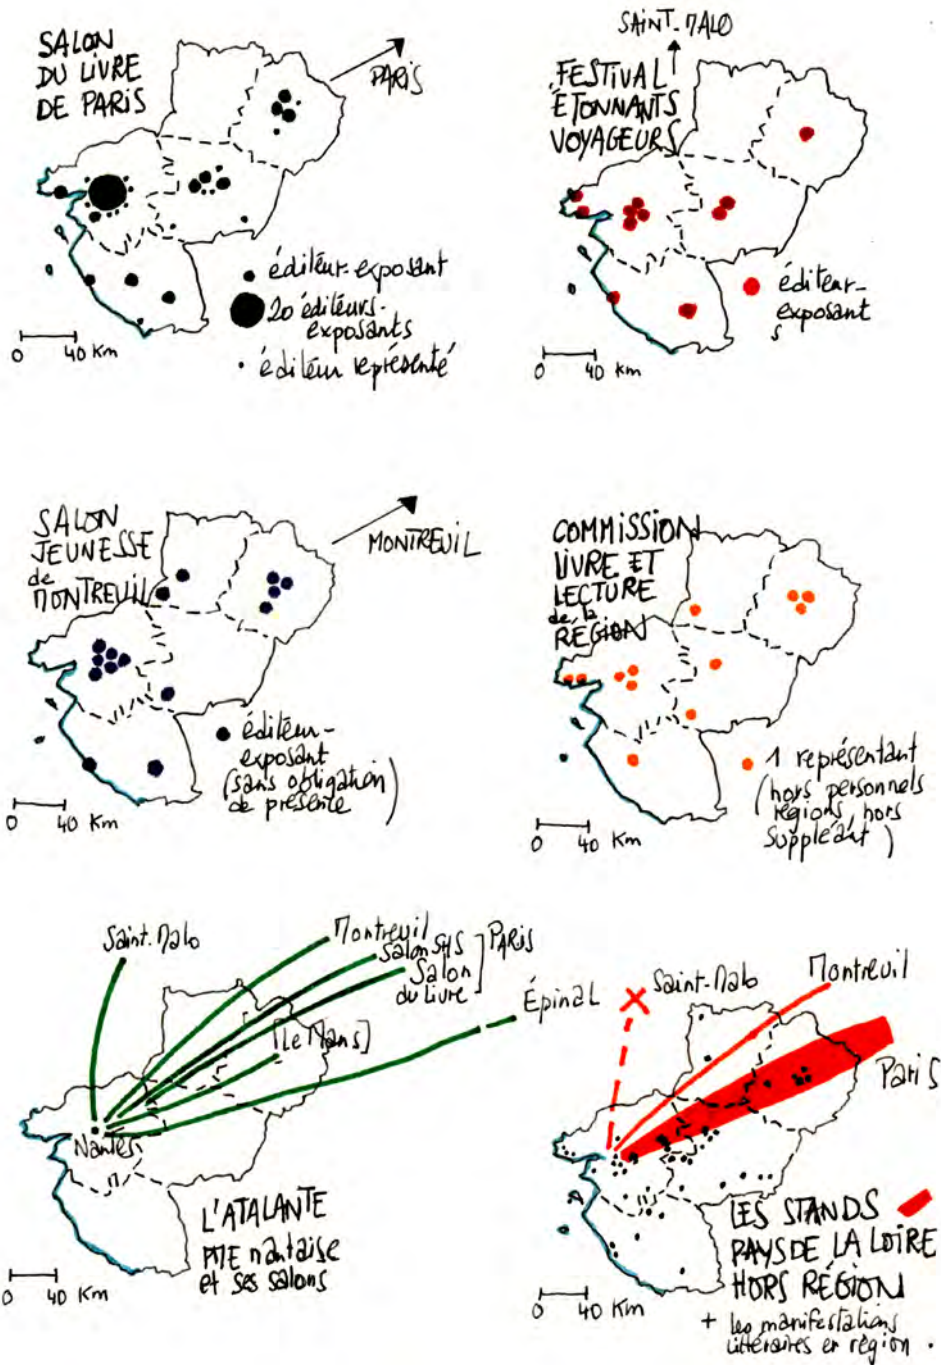 SALON
DU LIVRE
DE PARIS
PARIS
éditeur-exposant
20 éditeurs-
exposants
éditeur représenté
0 40 Km
SAINT-MALO
FESTIVAL
ÉTONNANTS
VOYAGEURS
éditeur-
exposant
s
0 40 Km
SALON
JEUNESSE
de
MONTREUIL
MONTREUIL
éditeur-
exposant
(sans obligation
de présence)
0 40 Km
COMMISSION
LIVRE ET
LECTURE
de la
RÉGION
1 représentant
(hors personnels
régions, hors
suppléant)
0 40 Km
Saint-Malo
Montreuil
Salon SHS
Salon
du Livre
PARIS
Épinal
[Le Mans]
Nantes
L'ATALANTE
PME nantaise
et ses salons
0 40 Km
Saint-Malo
Montreuil
Paris
LES STANDS
PAYS DE LA LOIRE
HORS RÉGION
+ les manifestations
littéraires en région.
0 40 Km